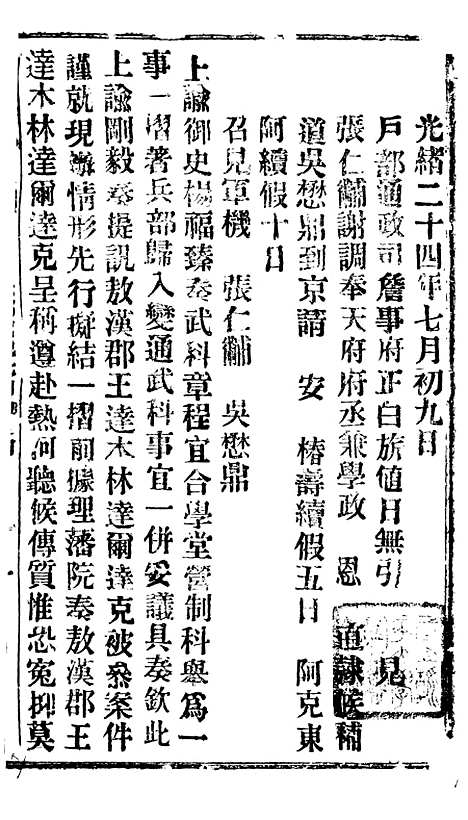 光緒二十四年七月初九日
戶部通政司詹事府正白旗值日無引見
張仁黼謝調奉天府府丞兼學政 恩 直隸候補
道吳懋鼎到京請 安 椿壽續假五日 阿克東
阿續假十日
召見軍機 張仁黼 吳懋鼎
上諭御史楊福臻奏武科章程宜合學堂營制科舉為一
事一摺著兵部歸入變通武科事宜一併妥議具奏欽此
上諭剛毅奏提訊敖漢郡王達木林達爾達克被參案件
謹就現辦情形先行擬結一摺前據理藩院奏敖漢郡王
達木林達爾達克呈稱遵赴熱河聽候傳質惟恐冤抑莫